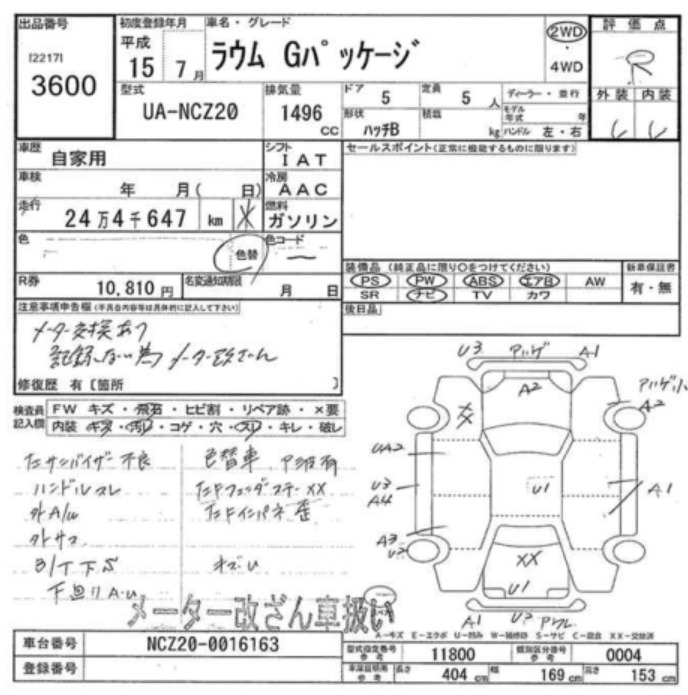 出品番号
[2217]
3600
初度登録年月
平成
15 7月
車名・グレード
ラウム Gパッケージ
2WD
・
4WD
評価点
R
外装 内装
型式
UA-NCZ20
排気量
1496 CC
ドア 5
定員 5 人
ディーラー・並行
モデル年式 年
形状 ハッチB
積載 kg
ハンドル 左・右
車歴 自家用
シフト IAT
セールスポイント(正常に機能するものに限ります)
車検 年 月( 日)
冷房 AAC
走行 24万4千647 km
燃料 ガソリン
色 色替
色コード
R券 10,810円
名変通知期限 月 日
装備品 (純正品に限り○をつけてください)
新車保証書
PS PW ABS エアB AW
有・無
SR ナビ TV カワ
後日品
注意事項申告欄(不具合内容等は具体的に記入して下さい)
メーター交換あり
記録ない為 メーター改ざん
修復歴 有 [箇所 ]
検査員記入欄
FW キズ・飛石・ヒビ割・リペア跡・×要
内装 キズ・汚レ・コゲ・穴・スレ・キレ・破レ
サンバイザー不良
色替車
ハンドルスレ
XX
外A/W
外サス
下S
下回り A・U
U3 A1
A2
XX
A2
UA2
U3
A4
U1
A1
A3
XX
U1
A1
メーター改ざん車扱い
A-キズ E-エクボ U-凹み W-補修跡 S-サビ C-腐食 XX-交換済
車台番号 NCZ20-0016163
型式指定番号 参考 11800
類別区分番号 参考 0004
登録番号
車庫証明用 参考
長さ 404 cm
幅 169 cm
高さ 153 cm